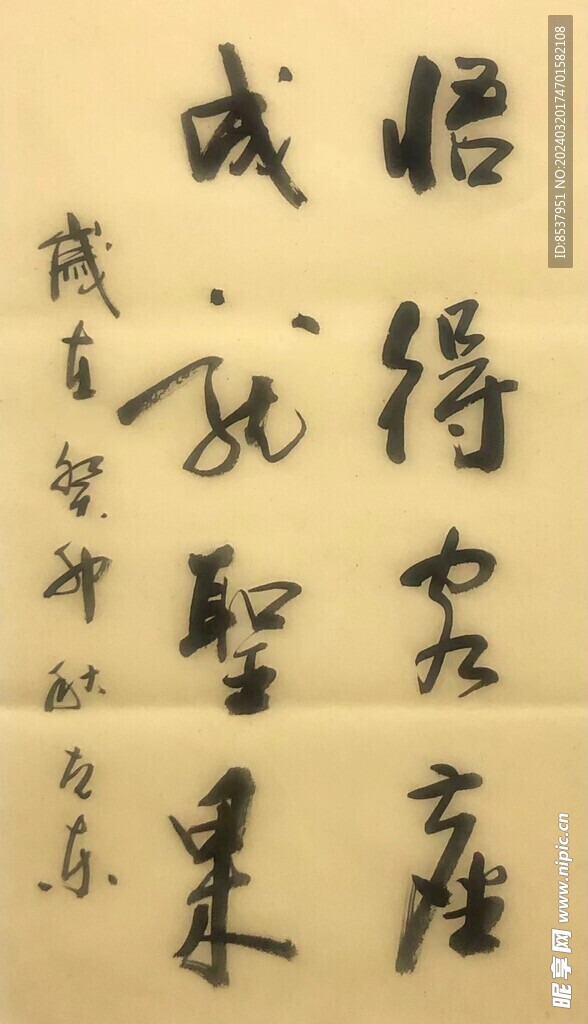 悟得座
成就聖果
歲在癸卯秋左东
ID:8537951 NO:20240320174701582108
昵享网 www.nipic.cn